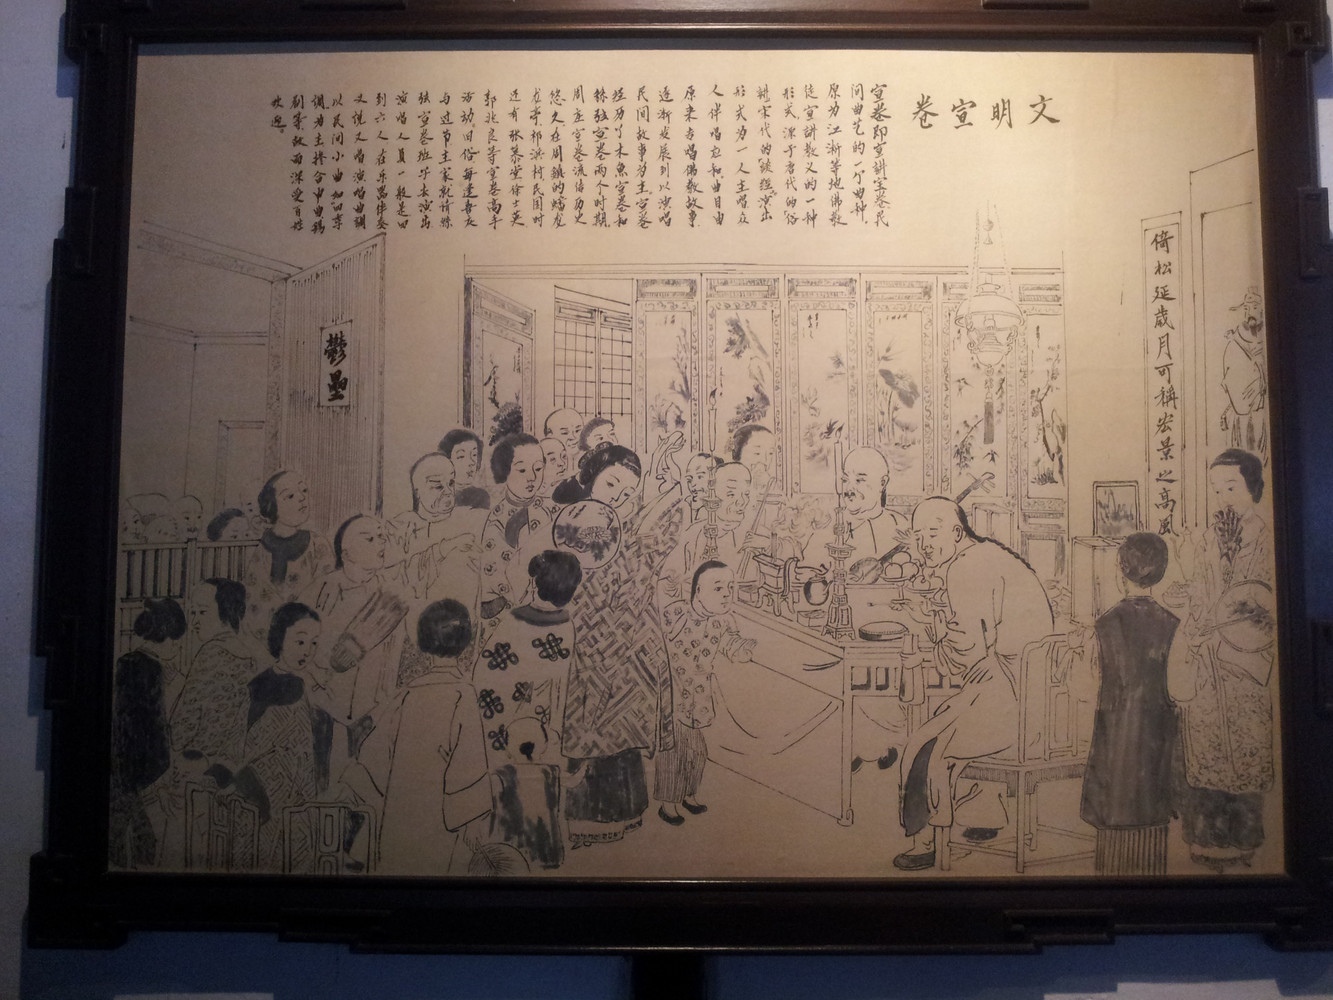 文明宣卷
宣卷即宣讲宝卷民
间曲艺的一个曲种,
原为江浙等地佛教
徒宣讲教义的一种
形式源于唐代的俗
讲宋代的谈经演出
形式为一人主唱众
人伴唱应和曲目由
原来专唱佛教故事
逐渐发展到以演唱
民间故事为主宣卷
经历了木鱼宣卷和
丝弦宣卷两个时期
周庄宣卷流传历史
悠久在周镇的蟠龙
龙亭祁浜村民国时
还有张慕堂徐士英
郭兆良等宣卷高手
活动旧俗每逢喜庆
与过节主家就请丝
弦宣卷班子去演出
演唱人员一般是四
到六人在乐器伴奏
又说又唱演唱曲调
以民间小曲如四季
调为主掺合申曲锡
剧等故而深受百姓
欢迎。
鬱壘
倚松延歲月可稱宏景之高風